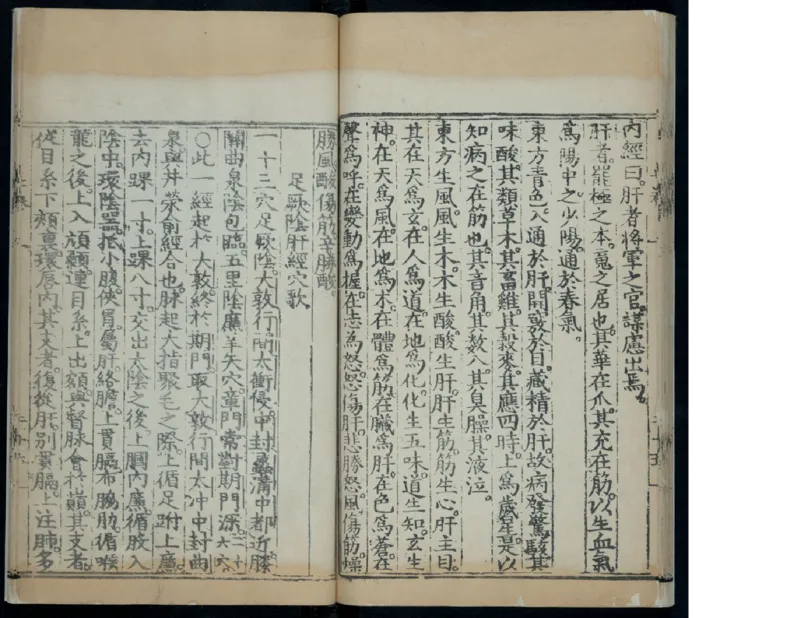 內經曰肝者將軍之官謀慮出焉
肝者罷極之本䰟之居也其華在爪其充在筋以生血氣
爲陽中之少陽通於春氣
東方青色入通於肝開竅於目藏精於肝故病發驚駭其
味酸其類草木其畜雞其穀麥其應四時上爲歲星是以
知病之在筋也其音角其數八其臭臊其液泣
東方生風風生木木生酸酸生肝肝生筋筋生心肝主目
其在天爲玄在人爲道在地爲化化生五味道生知玄生
神在天爲風在地爲木在體爲筋在臟爲肝在色爲蒼在
聲爲呼在變動爲握在志爲怒怒傷肝悲勝怒風傷筋燥
勝風酸傷筋辛勝酸
足厥陰肝經穴歌
一十三穴足厥陰大敦行間太衝侵中封蠡溝中都近膝
關曲泉陰包臨五里陰廉羊矢穴章門常對期門深二十六穴
○此一經起於大敦終於期門取大敦行間太冲中封曲
泉與井滎俞經合也脉起大指聚毛之際上循足跗上廉
去內踝一寸上踝八寸交出太陰之後上膕內廉循股入
陰中環陰器抵小腹俠胃屬肝絡膽上貫膈布脇肋循喉
嚨之後上入頏顙連目系上出額與督脉會於巔其支者
從目系下頰裏環唇內其支者復從肝別貫膈上注肺多